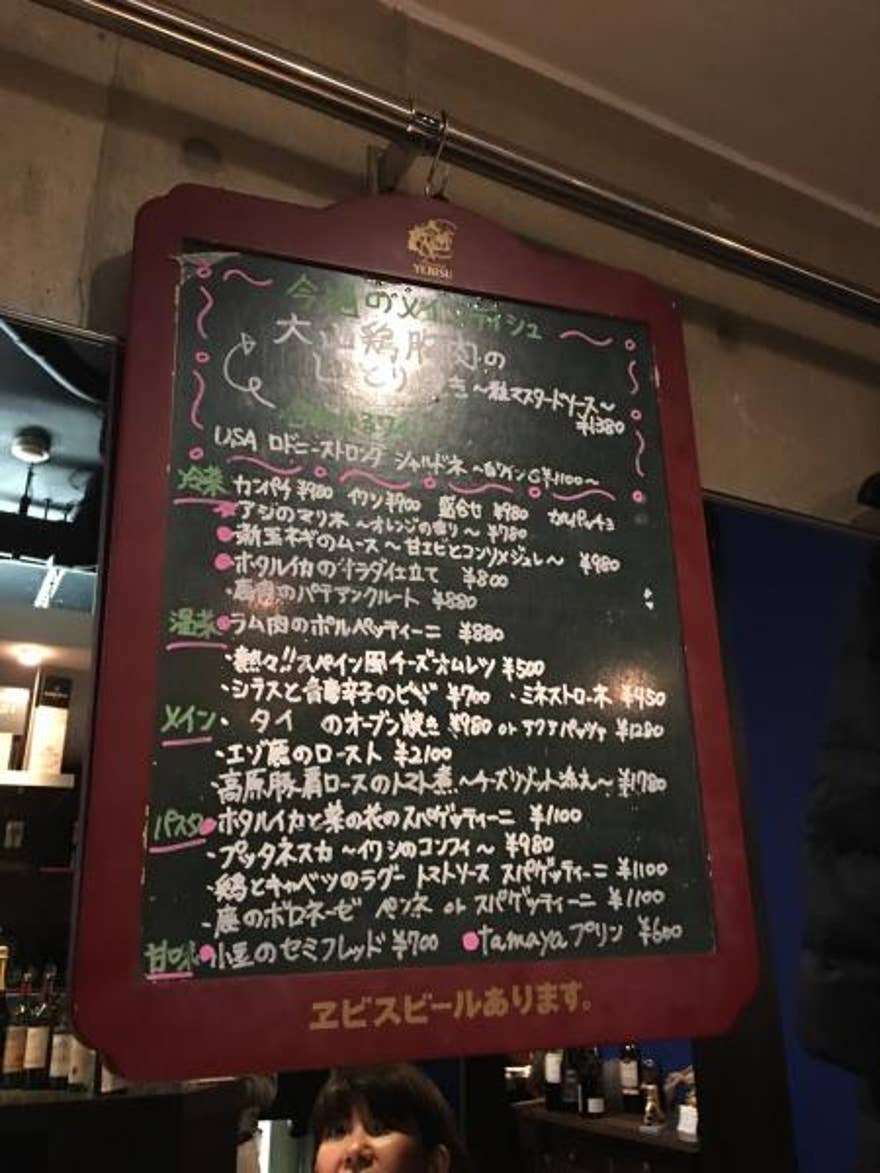 YEBISU
今週のメインディシュ
大山鶏胸肉の
しとり き～粒マスタードソース～
¥1380
USA ロドニーストロング シャルドネ ～白ワインG¥1100～
冷菜 カンパチ¥980 イワシ¥900 盛合せ ¥980 カルパッチョ
アジのマリネ ～オレンジの香り～ ¥780
新玉ネギのムース～甘エビとコンソメジュレ～ ¥980
ホタルイカのサラダ仕立て ¥800
のパテアンクルート ¥880
温菜 ラム肉のポルペッティーニ ¥880
・熱々!!スペイン風チーズオムレツ ¥500
・シラスと青唐辛子のピザ ¥700 ・ミネストローネ ¥450
メイン ・タイ のオーブン焼き ¥980 or アクアパッツァ ¥1280
・エゾ鹿のロースト ¥2100
・高原豚肩ロースのトマト煮～チーズリゾット添え～¥1780
パスタ ホタルイカと菜の花のスパゲッティーニ ¥1100
・プッタネスカ ～イワシのコンフィ～ ¥980
・鶏とキャベツのラグー トマトソース スパゲッティーニ ¥1100
・鹿のボロネーゼ ペンネ or スパゲッティーニ ¥1100
甘味 小豆のセミフレッド ¥700 tamayaプリン ¥600
ヱビスビールあります。